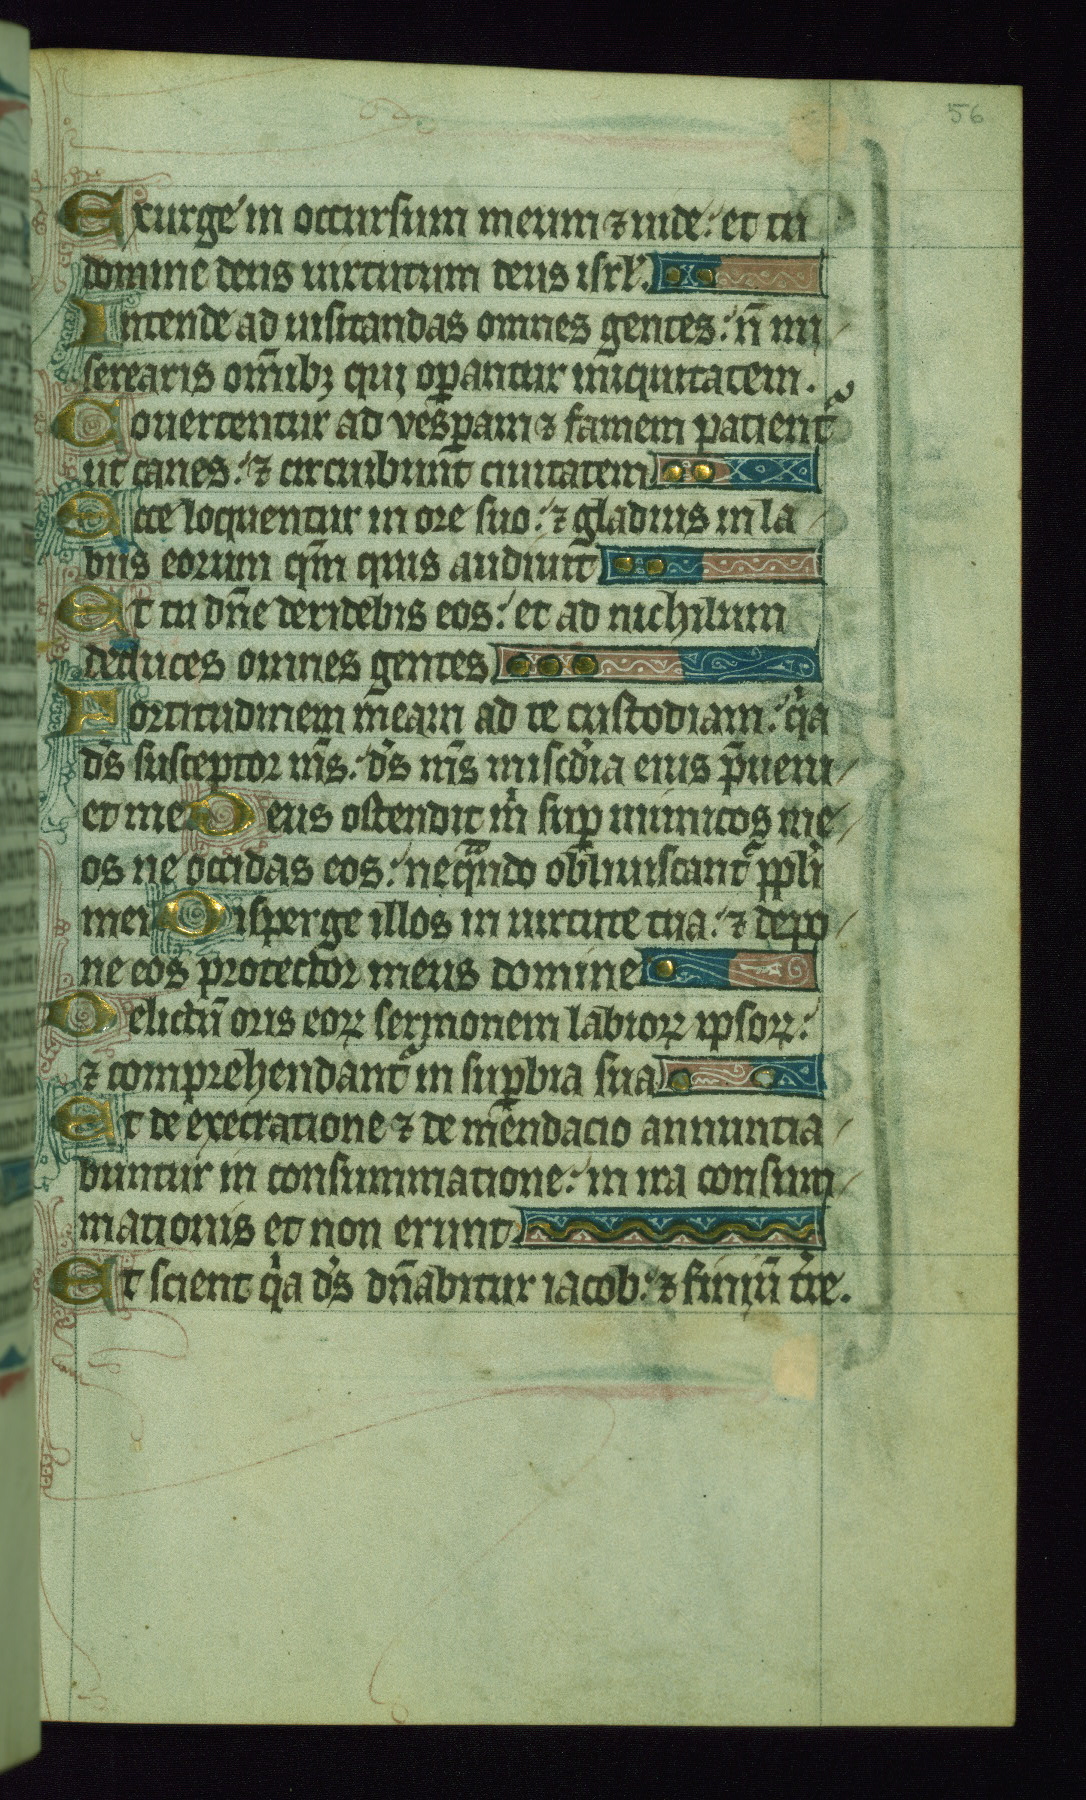 56
Exurge in occursum meum ⁊ uide: et tu
domine deus uirtutum deus isrl'.
Intende ad uisitandas omnes gentes: n̄ mi
serearis om̄ibꝫ qui oꝑantur iniquitatem.
Couertentur ad vesꝑam ⁊ famem patient᷑
ut canes: ⁊ circuibunt ciuitatem
Ecce loquentur in ore suo: ⁊ gladius in la
biis eorum qm̄ quis audiuit
Et tu dn̄e deridebis eos: et ad nichilum
deduces omnes gentes
Fortitudinem meam ad te custodiam: qͥa
ds̄ susceptor ms̄: ds̄ ms̄ miscd̓ia eius p̄ueni
et me Deus ostendit m̓ suꝑ inimicos me
os ne occidas eos: neqᷓndo obliuiscant᷑ ppl̓i
mei Disperge illos in uirtute tua: ⁊ depo
ne eos protector meus domine
Delictū oris eoꝝ sermonem labioꝝ ipsoꝝ:
⁊ comprehendant᷑ in suꝑbia sua
Et de execratione ⁊ de mendacio annuntia
buntur in consummatione: in ira consum
mationis et non erunt
Et scient qͥa ds̄ dn̄abitur iacob: ⁊ finiū t̓re.